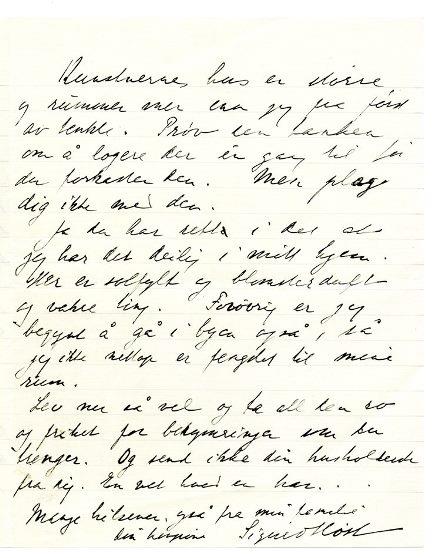 Kunstnernes hus er større
og rummer mer enn jeg fra først
av tenkte. Prøv den tanken
om å logere der en gang til før
du forkaster den. Men plag
dig ikke med den.
Ja du har rett i det at
jeg har det deilig i mitt hjem.
Her er solfylt og blomsterduft
og vakre ting. Forøvrig er jeg
begynt å gå i byen også, så
jeg ikke netop er fengslet til mine
rum.
Lev nu så vel og ta all den ro
og frihet for bekymringer som du
trenger. Og send ikke din husholderske
fra dig. En vet hvad en har...
Mange hilsener, også fra min familie
Din hengivne Sigurd Høst